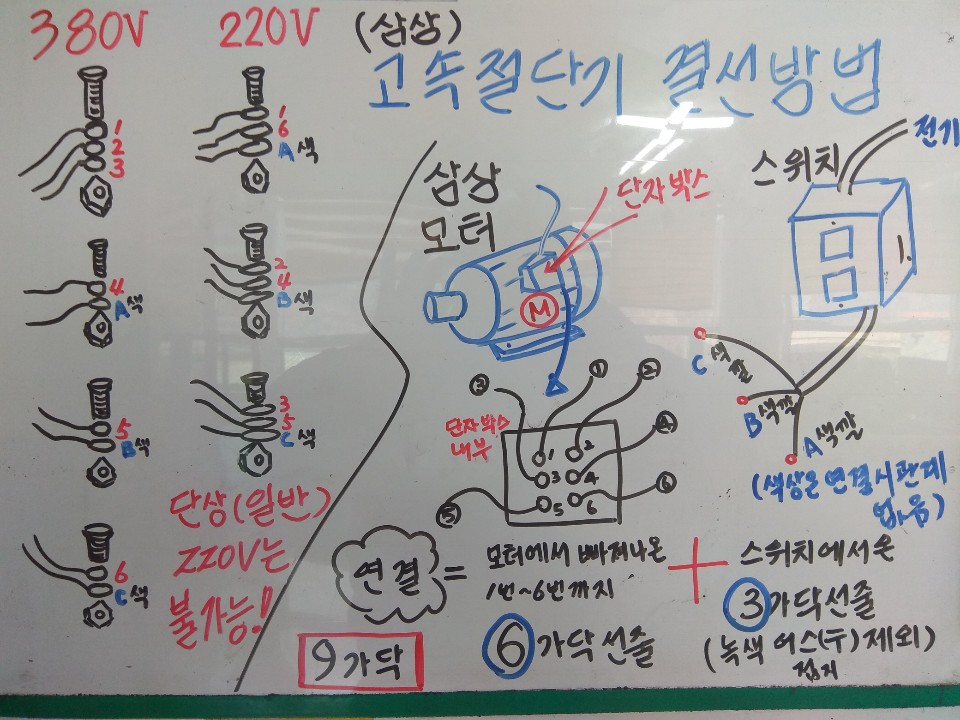 380V
220V
(삼상)
고속절단기 결선방법
1
2
3
4
A색
5
B색
6
C색
1
6
A색
2
4
B색
3
5
C색
단상(일반)
220V는
불가능!
삼상
모터
단자박스
M
스위치
전기
C 색깔
B색깔
A색깔
(색상은 연결시 관계
없음)
단자박스
내부
③
①
②
④
⑥
⑤
1
2
3
4
5
6
연결
=
모터에서 빠져나온
1번~6번까지
⑥가닥선줄
+
스위치에서 온
③가닥선줄
(녹색 어스(〒)제외)
접지
9가닥